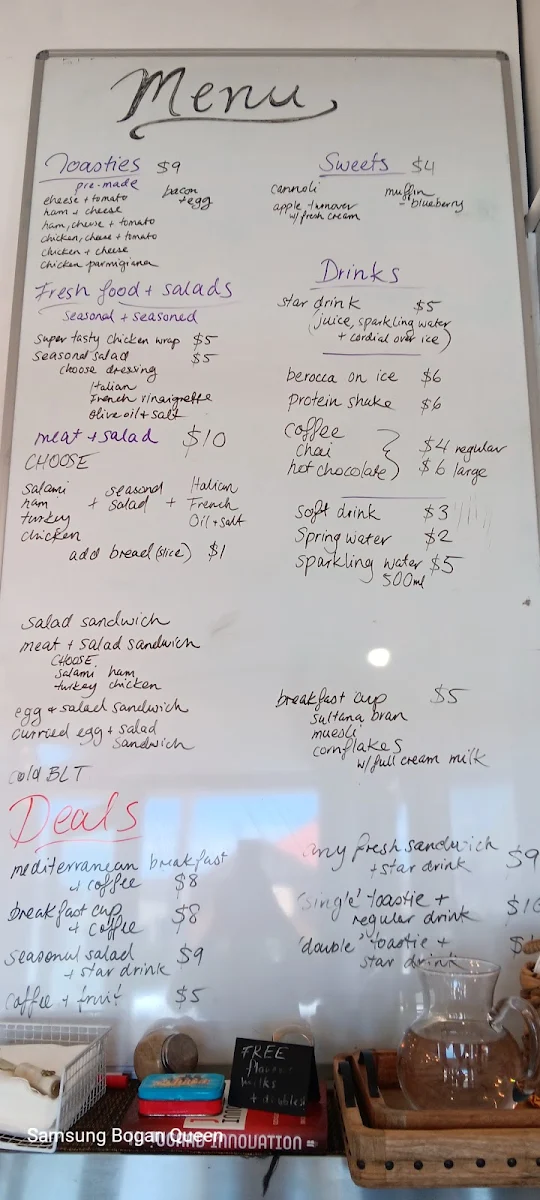 Menu
Toasties $9
pre-made
cheese + tomato
ham + cheese
ham, cheese + tomato
chicken, cheese + tomato
chicken + cheese
chicken parmigiana
bacon
+ egg
Fresh food + salads
seasonal + seasoned
super tasty chicken wrap $5
seasonal salad $5
choose dressing
Italian
French vinaigrette
Olive oil + salt
meat + salad $10
CHOOSE
salami
ham
turkey
chicken
+ seasonal
salad +
Italian
French
Oil + salt
add bread (slice) $1
salad sandwich
meat + salad sandwich
CHOOSE
salami ham
turkey chicken
egg + salad sandwich
curried egg + salad
sandwich
cold BLT
Sweets $4
cannoli
apple turnover
w/ fresh cream
muffin
- blueberry
Drinks
star drink $5
(juice, sparkling water
+ cordial over ice)
berocca on ice $6
protein shake $6
coffee
chai
hot chocolate
$4 regular
$6 large
soft drink $3
Spring water $2
sparkling water $5
500ml
breakfast cup $5
sultana bran
muesli
cornflakes
w/ full cream milk
Deals
mediterranean breakfast
+ coffee $8
breakfast cup
+ coffee $8
seasonal salad $9
+ star drink
coffee + fruit $5
any fresh sandwich
+ star drink $9
'single' toastie +
regular drink
'double' toastie +
star drink
FREE
milks
INNOVATION
Samsung Bogan Queen